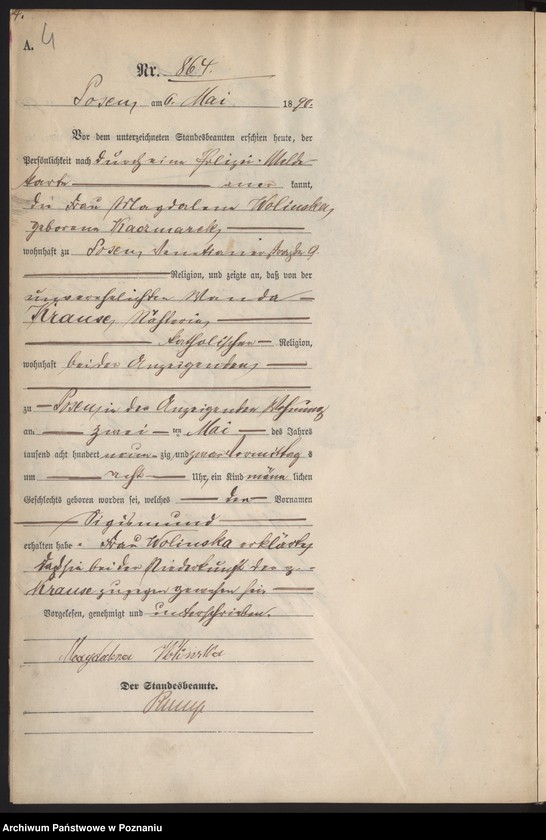 4.
A. 4
Nr. 864.
Posen, am 6. Mai 1890.
Vor dem unterzeichneten Standesbeamten erschien heute, der
Persönlichkeit nach durch eine Polizei-Melde-
karte kannt,
die Frau Magdalena Wolinska,
geborene Kaczmarek,
wohnhaft zu Posen, Venetianerstraße 9
Religion, und zeigte an, daß von der
unverehelichten Wanda
Krause, Näherin,
katholischer Religion,
wohnhaft bei der Anzeigenden,
zu Posen, in der Anzeigenden Wohnung
am zwei ten Mai des Jahres
tausend acht hundert neun zig und zwar Vormittags
um acht Uhr, ein Kind männlichen
Geschlechts geboren worden sei, welches den Vornamen
Sigismund
erhalten habe. Frau Wolinska erklärte,
daß sie bei der Niederkunft der p.
Krause zugegen gewesen sei.
Vorgelesen, genehmigt und unterschrieben.
Magdalena Wolinska
Der Standesbeamte.
Archiwum Państwowe w Poznaniu